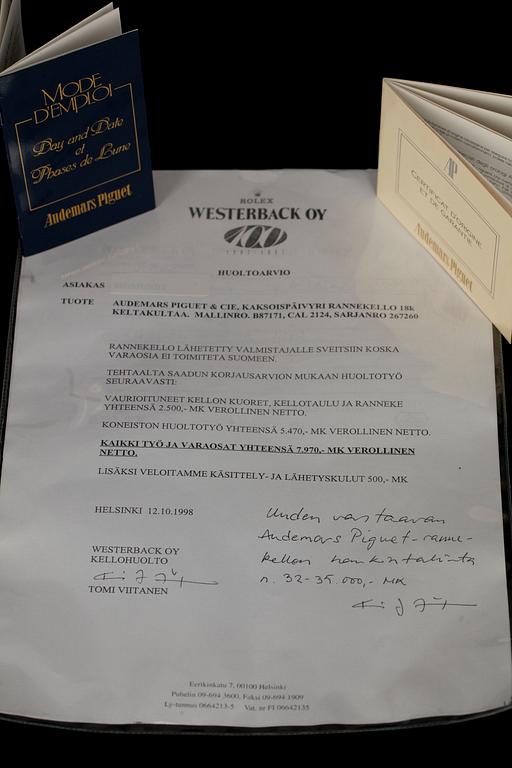 MODE
D'EMPLOI
Day and Date
et
Phases de Lune
Audemars Piguet
AP
CERTIFICAT D'ORIGINE
ET DE GARANTIE
Audemars Piguet
ROLEX
WESTERBACK OY
100
HUOLTOARVIO
ASIAKAS
TUOTE AUDEMARS PIGUET & CIE, KAKSOISPÄIVYRI RANNEKELLO 18k
KELTAKULTAA. MALLINRO. B87171, CAL 2124, SARJANRO 267260
RANNEKELLO LÄHETETTY VALMISTAJALLE SVEITSIIN KOSKA
VARAOSIA EI TOIMITETA SUOMEEN.
TEHTAALTA SAADUN KORJAUSARVION MUKAAN HUOLTOTYÖ
SEURAAVASTI:
VAURIOITUNEET KELLON KUORET, KELLOTAULU JA RANNEKE
YHTEENSÄ 2.500,- MK VEROLLINEN NETTO.
KONEISTON HUOLTOTYÖ YHTEENSÄ 5.470,- MK VEROLLINEN NETTO.
KAIKKI TYÖ JA VARAOSAT YHTEENSÄ 7.970,- MK VEROLLINEN
NETTO.
LISÄKSI VELOITAMME KÄSITTELY- JA LÄHETYSKULUT 500,- MK
HELSINKI 12.10.1998
WESTERBACK OY
KELLOHUOLTO
TOMI VIITANEN
Uuden vastaavan
Audemars Piguet-ranne-
kellon hankintahinta
n. 32-35.000,- MK
Eerikinkatu 7, 00100 Helsinki
Puhelin 09-694 3600, Faksi 09-694 1909
Lj-tunnus 0664213-5 Vat. nr FI 06642135